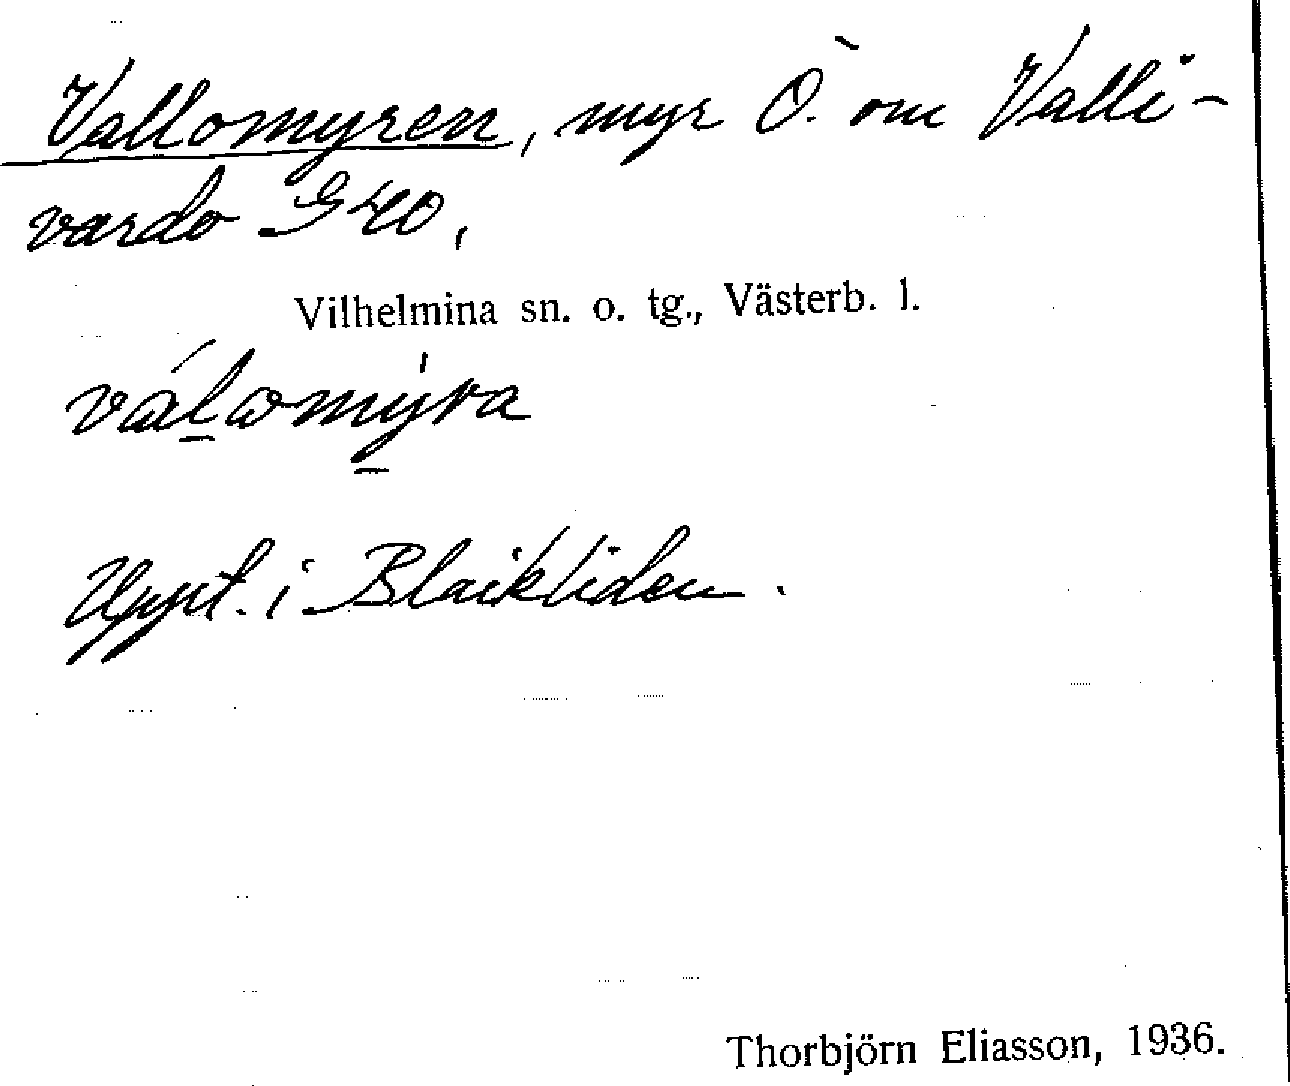 Vallomyren, myr Ö. om Valli-
vardo GHO,
Vilhelmina sn. o. tg., Västerb. l.
Uppt. i Blaikliden.
Thorbjörn Eliasson, 1936.